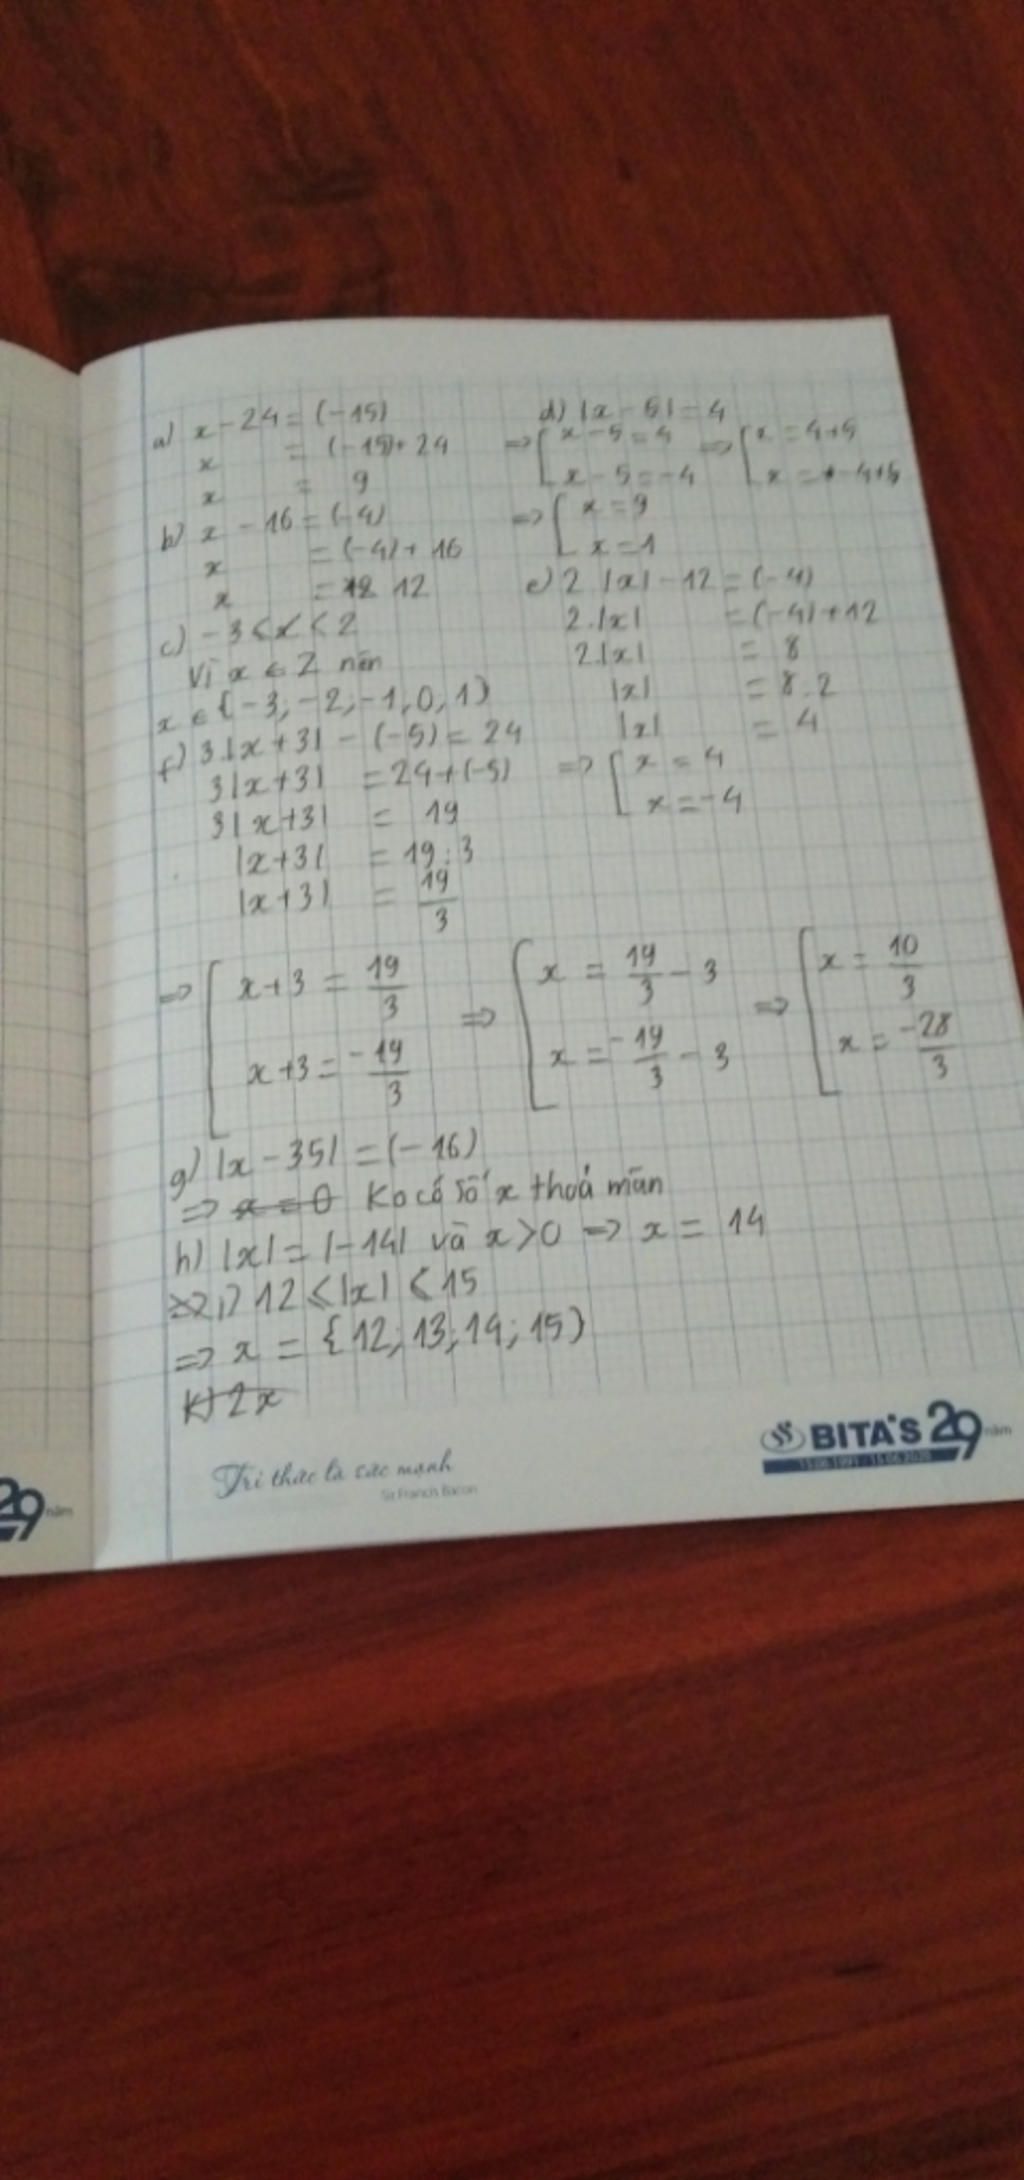 a) x - 24 = (-15)
x = (-15) + 24
x = 9
b) x - 16 = (-4)
x = (-4) + 16
x = 12
c) -3 ≤ x < 2
Vì x ∈ Z nên
x ∈ {-3; -2; -1; 0; 1}
d) |x - 5| = 4
=> [ x - 5 = 4 => [ x = 4+5
x - 5 = -4 x = -4+5
=> [ x = 9
x = 1
e) 2.|x| - 12 = (-4)
2.|x| = (-4) + 12
2.|x| = 8
|x| = 8 : 2
|x| = 4
=> [ x = 4
x = -4
f) 3.|x + 3| - (-5) = 24
3|x+3| = 24 + (-5)
3|x+3| = 19
|x+3| = 19 : 3
|x+3| = 19/3
=> [ x+3 = 19/3 => [ x = 19/3 - 3 => [ x = 10/3
x+3 = -19/3 x = -19/3 - 3 x = -28/3
g) |x - 35| = (-16)
=> x = 0 Ko có số x thoả mãn
h) |x| = |-14| và x > 0 => x = 14
i) 12 ≤ |x| ≤ 15
=> x = {12; 13; 14; 15}
k) 2x
Tri thức là sức mạnh
Sir Francis Bacon
BITA'S 29 năm
29 năm